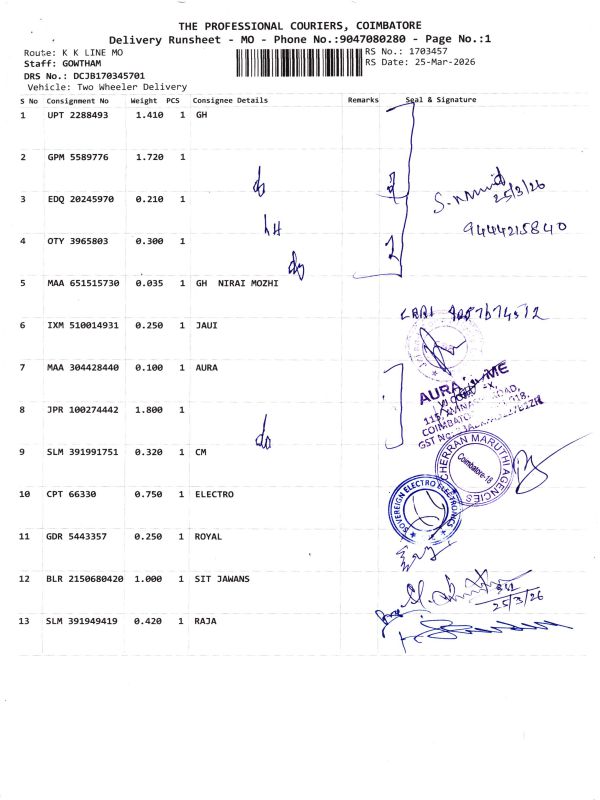 THE PROFESSIONAL COURIERS, COIMBATORE
Delivery Runsheet - MO - Phone No.:9047080280 - Page No.:1
Route: K K LINE MO
Staff: GOWTHAM
DRS No.: DCJB170345701
Vehicle: Two Wheeler Delivery
RS No.: 1703457
RS Date: 25-Mar-2026
S No Consignment No Weight PCS Consignee Details Remarks Seal & Signature
1 UPT 2288493 1.410 1 GH
2 GPM 5589776 1.720 1
do
3 EDQ 20245970 0.210 1
25/3/26
9444215840
4 OTY 3965803 0.300 1
5 MAA 651515730 0.035 1 GH NIRAI MOZHI
6 IXM 510014931 0.250 1 JAUI
7 MAA 304428440 0.100 1 AURA
AURA
COIMBATO
GST No
8 JPR 100274442 1.800 1
do
9 SLM 391991751 0.320 1 CM
CHERRAN MARUTHI AGENCIES
Coimbatore-18
10 CPT 66330 0.750 1 ELECTRO
SOVEREIGN ELECTRO ELECTRONICS
11 GDR 5443357 0.250 1 ROYAL
12 BLR 2150680420 1.000 1 SIT JAWANS
25/3/26
13 SLM 391949419 0.420 1 RAJA